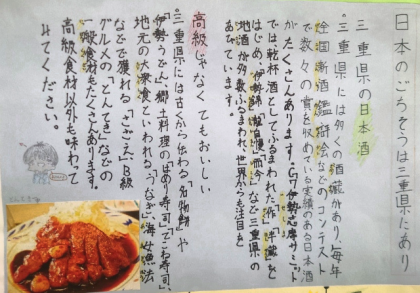 日本のごちそうは三重県にあり
三重県の日本酒
三重県には多くの酒蔵があり、毎年
全国新酒鑑評会などのコンテスト
で数々の賞を収めている実績のある日本酒
がたくさんあります。G7伊勢志摩サミット
では乾杯酒としてふるまわれた「作」「半蔵」を
はじめ、「伊勢錦」「瀧自慢」「而今」など三重県の
地酒が多数ふるまわれ、世界からも注目を
あびています。
高級じゃなくてもおいしい
三重県には古くから伝わる「名物餅」や
「伊勢うどん」、郷土料理の「はり寿司」「てこね寿司」、
地元の大衆食といわれる「うなぎ」、海女漁法
などで獲れる「さざえ」、B級
グルメの「とんてき」などの
一般食材もたくさんあります。
高級食材以外も味わって
みてください。
とんてき